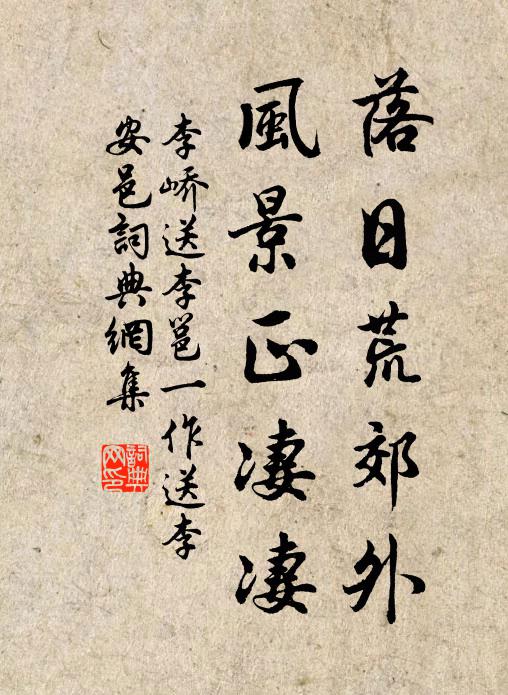 落日荒郊外
風景正凄凄
李嶠送李邕一作送李
安邑詞典網集
詞典網印